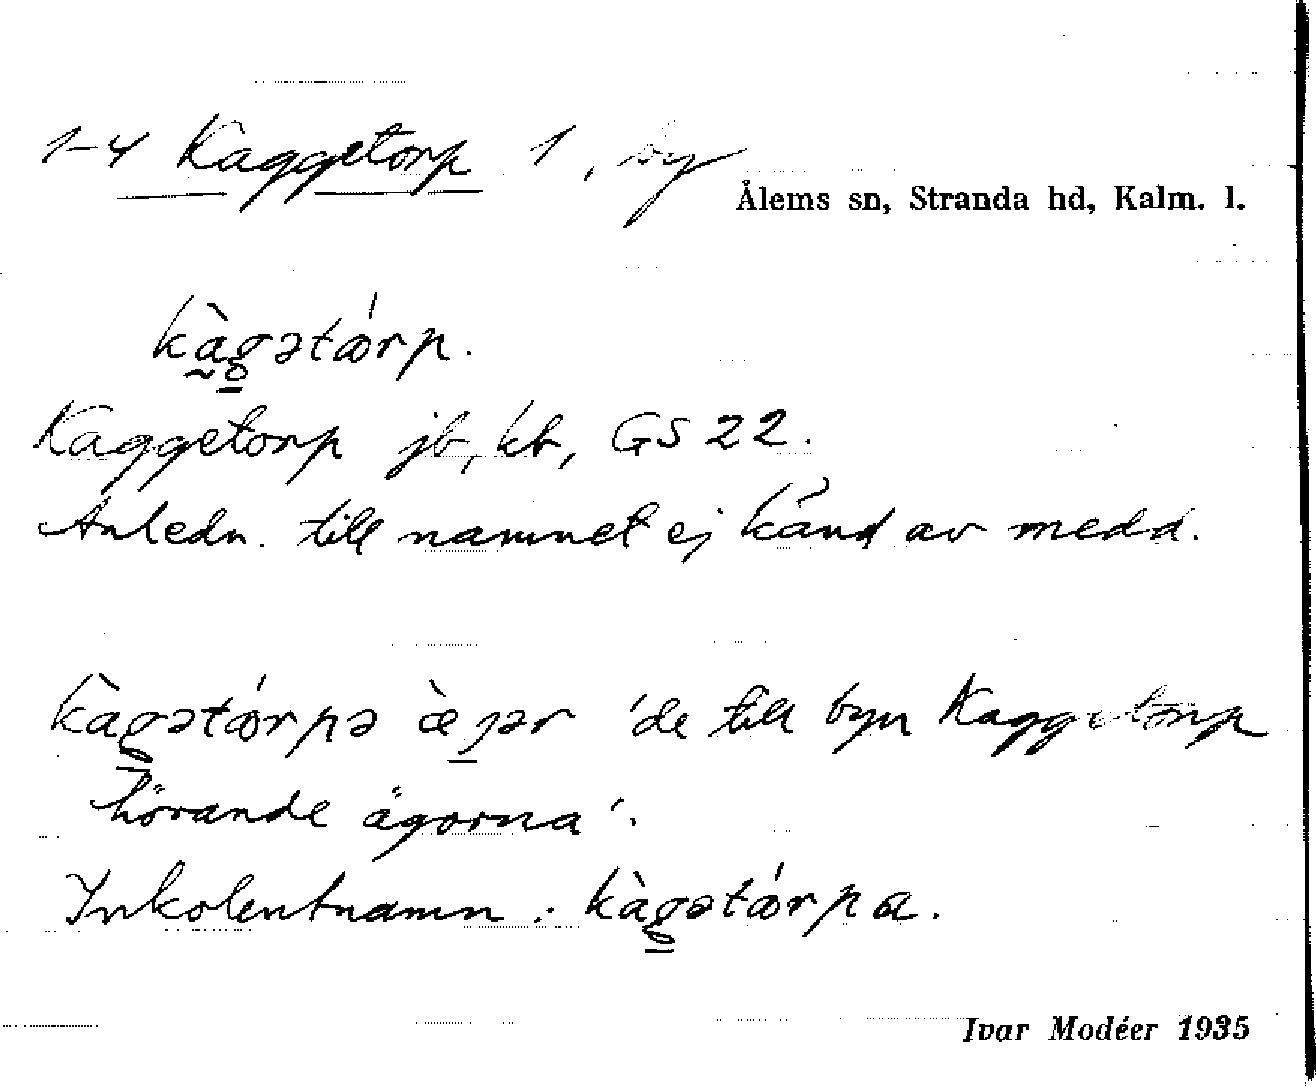 1-4 Kaggetorp 1, by
Ålems sn, Stranda hd, Kalm. l.
kàgətǿrp.
Kaggetorp jb, kb, GS 22.
Anledn. till namnet ej känd av medd.
kàgətǿrpə æ̀ȷər 'de till byn Kaggetorp
hörande ägorna'.
Inkolentnamn: kàgətǿrpa.
Ivar Modéer 1935